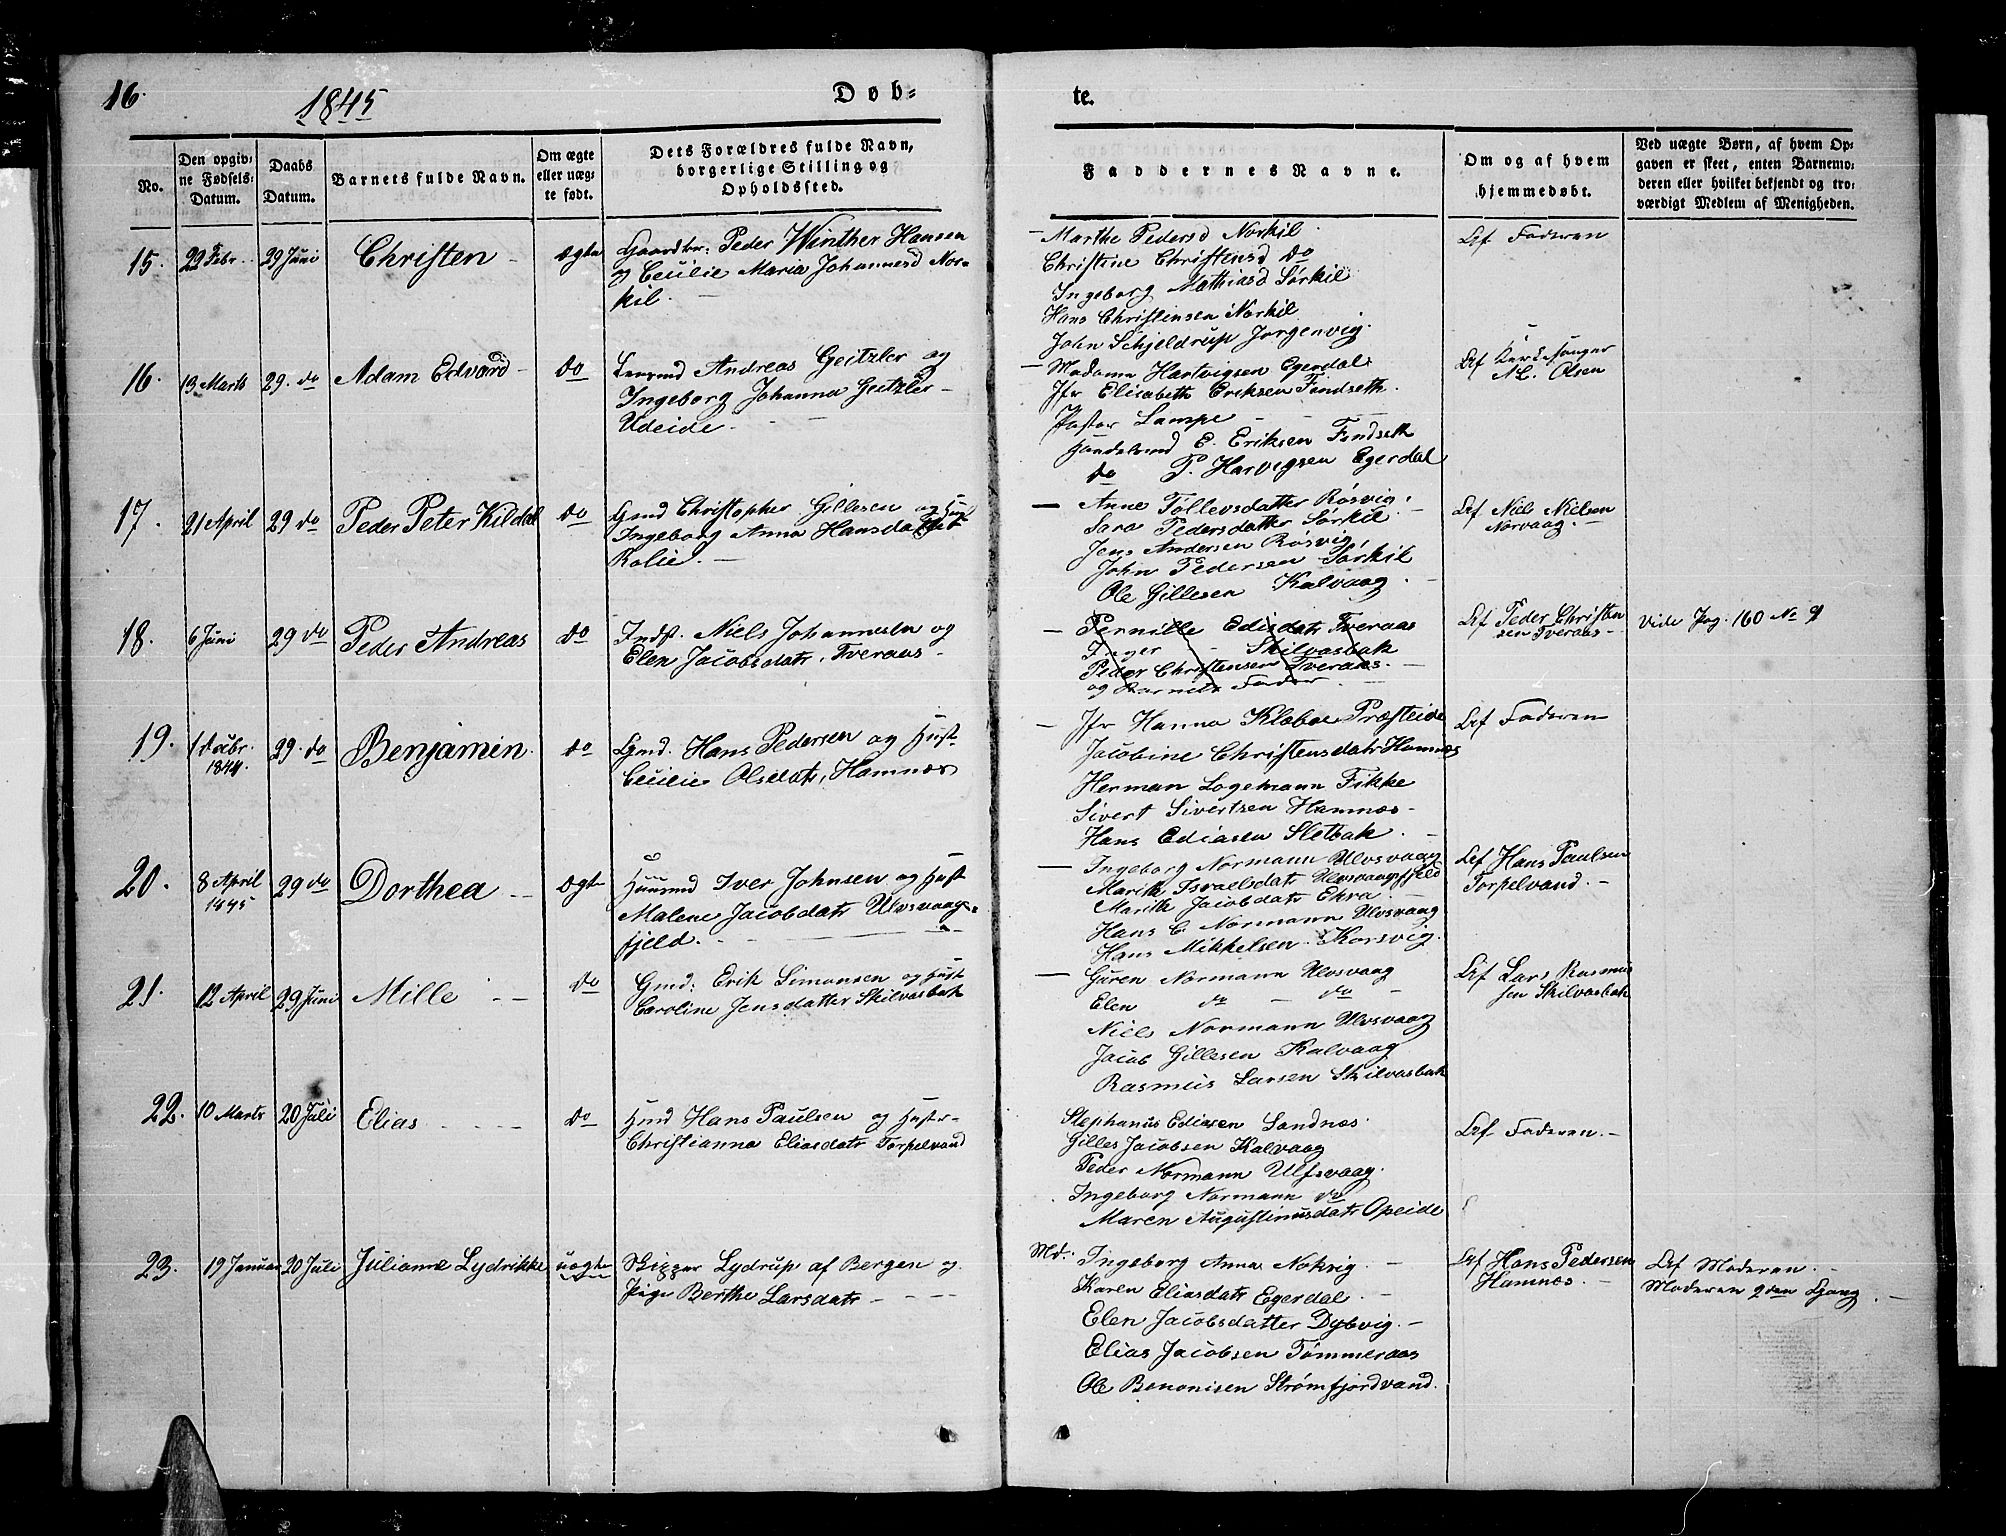 16.
1845
Døb-
te.
No.
Den opgiv-
ne Fødsels-
Datum.
Daabs
Datum.
Barnets fulde Navn.
Om ægte
eller uæg-
te født.
Dets Forældres fulde Navn,
borgerlige Stilling og
Opholdssted.
Faddernes Navne.
Om og af hvem
hjemmedøbt.
Ved uægte Børn, af hvem Op-
gaven er skeet, enten Barnemo-
deren eller hvilket bekjendt og tro-
værdigt Medlem af Menigheden.
15. 29 Febr. 29 Juni Christen - ægte
Gaardbr: Peder Winther Hansen
og Cecilie Maria Johannesd Nor-
kil. -
- Marthe Pedersd Norkil.
Christine Christensd do
Ingeborg Mathiasd Sørkil
Hans Christensen Norkil
John Schjeldrup Jorgenvig.
Af Faderen
16. 13 Marts 29. do Adam Edvard - do
Andreas Geitzler og
Ingeborg Johanna Geitzler -
Udeide. -
- Madame Hartvigsen Egerdal
Jfr Elisabeth Eriksen Fendseth.
Pastor Lampe - - -
Handelsmd E. Eriksen Findseth
do P. Harvigsen Egerdal
Af Kirkesanger
N L. Olsen
17. 21 April 29 do Peder Peter Kildal do
Gmd Christopher Gillesen og Hust
Ingeborg Anna Hansdatter
Rolie. -
- Anne Tollevsdatter Røsvig.
Sara Pedersdatter Sørkil -
Jens Andersen Røsvig
John Pedersen Sørkil
Ole Gillesen Kalvaag. -
Af Niels Nielsen
Norvaag. -
18. 6 Juni 29 do Peder Andreas do
Indst. Niels Johannesen og
Elen Jacobsdatr, Tveraas -
- Pernille Edisdatr Tveraas
Inger - Skilvasbak
Peder Christensen Tveraas. -
og Barnets Fader. -
Af Peder Christen
sen Tveraas -
vide Pag: 160 No 9
19. 1 Decbr.
1844. 29. do Benjamin. do
Gmd. Hans Pedersen og Hust-
Cecilie Olsdatr, Hamnæs
- Jfr Hanna Klæboe Præsteide
Jacobine Christensdatr Hamnæs
Herman Logemann Fikke
Sivert Sivertsen Hamnæs -
Hans Ediasen Sletbak. -
Af Faderen
20. 8 April
1845 29 do Dorthea - - ægte
Huusmd Iver Johnsen og Hust
Malene Jacobdatr Ulvsvaag-
fjeld. - -
- Ingeborg Normann Ulvsvaag
Marith Israelsdatr Ulvsvaagsfjeld
Marith Jacobdatr Ekra. -
Hans C. Normann Ulvsvaag
Hans Mikkelsen Korsvig.
Af Hans Paulsen
Torpelvand. -
21. 12 April 29 Juni Mille - - do
Gmd: Erik Simonsen og Hust
Caroline Jensdatter Skilvasbak
- Guren Normann Ulvsvaag
Elen do - do -
Niels Normann Ulvsvaag
Jacob Gillesen Kalvaag
Rasmus Larsen Skilvasbak
Af Lars Rasmus
sen Skilvasbak
22. 10 Marts 20 Juli Elias - - - - do
Hmd Hans Paulsen og Hustr-
Christianna Eliasdatr Torpelvand
Stephanus Ediasen Sandnæs.
Gilles Jacobsen Kalvaag
Peder Normann Ulfsvaag.
Ingeborg Normann do
Maren Augustinusdatr Opeide
Af Faderen. -
23. 19 Januar 20 Juli Julianne Lydrikke uægte
Skipper Lydrup af Bergen og.
Pige Berthe Larsdatr - - - -
Md: Ingeborg Anna Nokvig. -
Karen Eliasdatr Egerdal. -
Elen Jacobsdatter Dybvig. -
Elias Jacobsen Tømmeraas
Ole Benonisen Strømfjordvand.
Af Hans Pedersen
Hamnæs. -
Af Moderen. -
Moderen 2den Gang. -